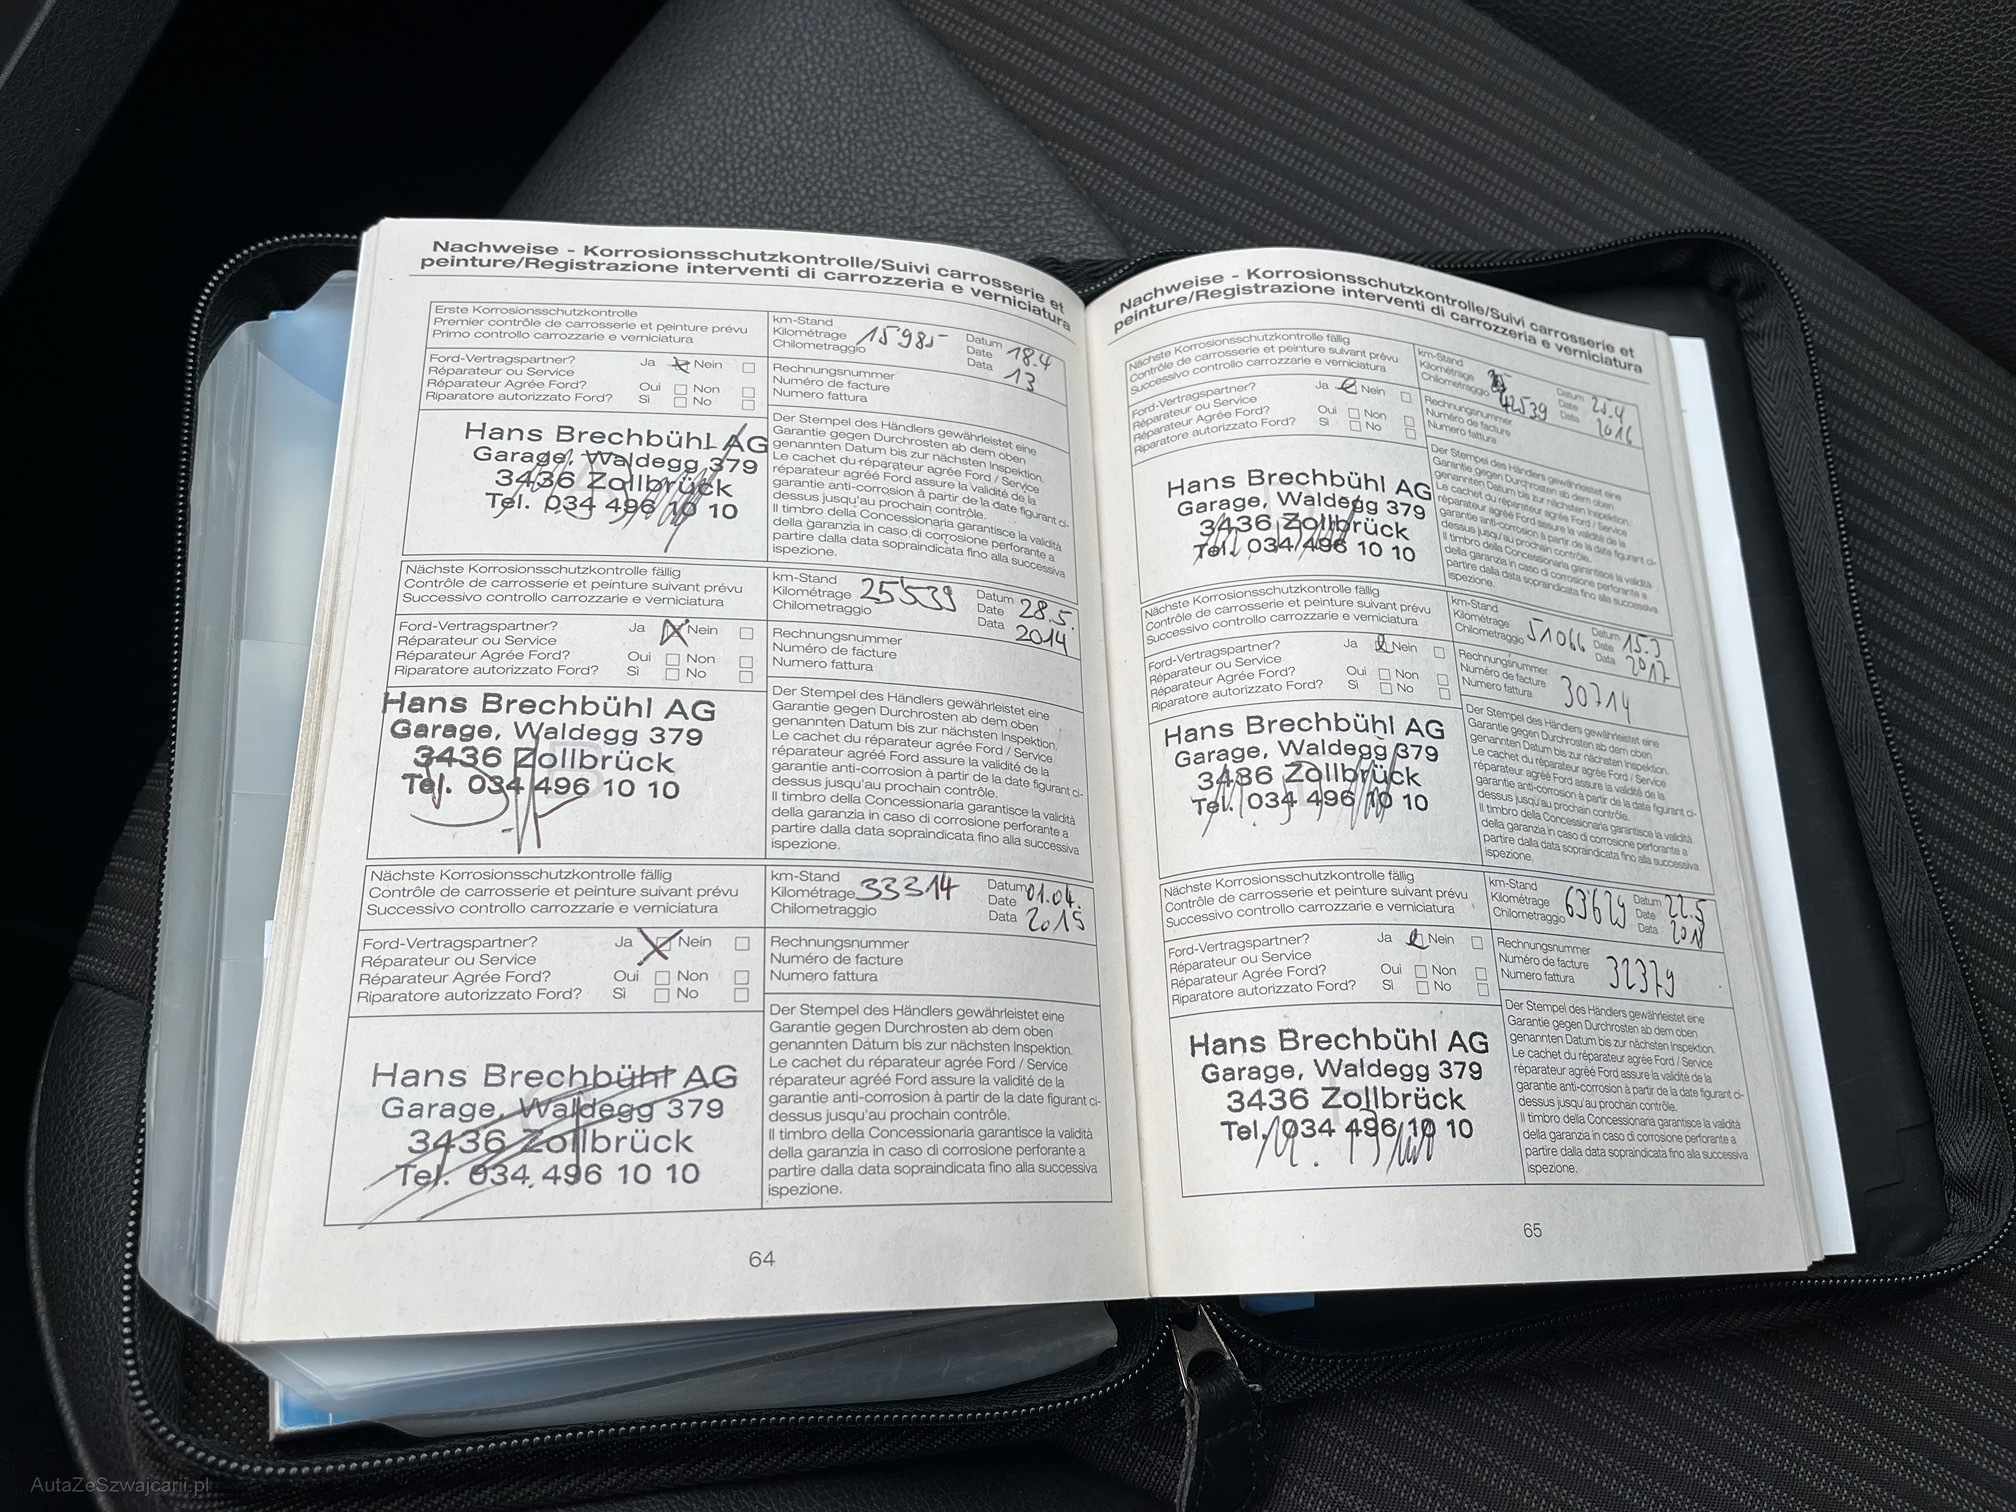 Nachweise - Korrosionsschutzkontrolle/Suivi carrosserie et
peinture/Registrazione interventi di carrozzeria e verniciatura
Erste Korrosionsschutzkontrolle
Premier contrôle de carrosserie et peinture prévu
Primo controllo carrozzarie e verniciatura
km-Stand
Kilométrage
Chilometraggio
Datum 18.4
Date
Data 13
Ford-Vertragspartner? Ja Nein
Réparateur ou Service
Réparateur Agrée Ford? Oui Non
Riparatore autorizzato Ford? Sì No
Rechnungsnummer
Numéro de facture
Numero fattura
Hans Brechbühl AG
Garage, Waldegg 379
3436 Zollbrück
Tel. 034 496 10 10
Der Stempel des Händlers gewährleistet eine
Garantie gegen Durchrosten ab dem oben
genannten Datum bis zur nächsten Inspektion.
Le cachet du réparateur agrée Ford / Service
réparateur agréé Ford assure la validité de la
garantie anti-corrosion à partir de la date figurant ci-
dessus jusqu'au prochain contrôle.
Il timbro della Concessionaria garantisce la validità
della garanzia in caso di corrosione perforante a
partire dalla data sopraindicata fino alla successiva
ispezione.
Nächste Korrosionsschutzkontrolle fällig
Contrôle de carrosserie et peinture suivant prévu
Successivo controllo carrozzarie e verniciatura
km-Stand
Kilométrage 25539
Chilometraggio
Datum 28.5.
Date
Data 2014
Ford-Vertragspartner? Ja Nein
Réparateur ou Service
Réparateur Agrée Ford? Oui Non
Riparatore autorizzato Ford? Sì No
Rechnungsnummer
Numéro de facture
Numero fattura
Hans Brechbühl AG
Garage, Waldegg 379
3436 Zollbrück
Tel. 034 496 10 10
Der Stempel des Händlers gewährleistet eine
Garantie gegen Durchrosten ab dem oben
genannten Datum bis zur nächsten Inspektion.
Le cachet du réparateur agrée Ford / Service
réparateur agréé Ford assure la validité de la
garantie anti-corrosion à partir de la date figurant ci-
dessus jusqu'au prochain contrôle.
Il timbro della Concessionaria garantisce la validità
della garanzia in caso di corrosione perforante a
partire dalla data sopraindicata fino alla successiva
ispezione.
Nächste Korrosionsschutzkontrolle fällig
Contrôle de carrosserie et peinture suivant prévu
Successivo controllo carrozzarie e verniciatura
km-Stand
Kilométrage 33314
Chilometraggio
Datum 01.04.
Date
Data 2015
Ford-Vertragspartner? Ja Nein
Réparateur ou Service
Réparateur Agrée Ford? Oui Non
Riparatore autorizzato Ford? Sì No
Rechnungsnummer
Numéro de facture
Numero fattura
Hans Brechbühl AG
Garage, Waldegg 379
3436 Zollbrück
Tel. 034 496 10 10
Der Stempel des Händlers gewährleistet eine
Garantie gegen Durchrosten ab dem oben
genannten Datum bis zur nächsten Inspektion.
Le cachet du réparateur agrée Ford / Service
réparateur agréé Ford assure la validité de la
garantie anti-corrosion à partir de la date figurant ci-
dessus jusqu'au prochain contrôle.
Il timbro della Concessionaria garantisce la validità
della garanzia in caso di corrosione perforante a
partire dalla data sopraindicata fino alla successiva
ispezione.
64
Nachweise - Korrosionsschutzkontrolle/Suivi carrosserie et
peinture/Registrazione interventi di carrozzeria e verniciatura
Nächste Korrosionsschutzkontrolle fällig
Contrôle de carrosserie et peinture suivant prévu
Successivo controllo carrozzarie e verniciatura
km-Stand
Kilométrage
Chilometraggio 42539
Datum 25.4
Date
Data 2016
Ford-Vertragspartner? Ja Nein
Réparateur ou Service
Réparateur Agrée Ford? Oui Non
Riparatore autorizzato Ford? Sì No
Rechnungsnummer
Numéro de facture
Numero fattura
Hans Brechbühl AG
Garage, Waldegg 379
3436 Zollbrück
Tel. 034 496 10 10
Der Stempel des Händlers gewährleistet eine
Garantie gegen Durchrosten ab dem oben
genannten Datum bis zur nächsten Inspektion.
Le cachet du réparateur agrée Ford / Service
réparateur agréé Ford assure la validité de la
garantie anti-corrosion à partir de la date figurant ci-
dessus jusqu'au prochain contrôle.
Il timbro della Concessionaria garantisce la validità
della garanzia in caso di corrosione perforante a
partire dalla data sopraindicata fino alla successiva
ispezione.
Nächste Korrosionsschutzkontrolle fällig
Contrôle de carrosserie et peinture suivant prévu
Successivo controllo carrozzarie e verniciatura
km-Stand
Kilométrage 51066
Chilometraggio
Datum 15.3
Date
Data 2017
Ford-Vertragspartner? Ja Nein
Réparateur ou Service
Réparateur Agrée Ford? Oui Non
Riparatore autorizzato Ford? Sì No
Rechnungsnummer
Numéro de facture
Numero fattura 30714
Hans Brechbühl AG
Garage, Waldegg 379
3436 Zollbrück
Tel. 034 496 10 10
Der Stempel des Händlers gewährleistet eine
Garantie gegen Durchrosten ab dem oben
genannten Datum bis zur nächsten Inspektion.
Le cachet du réparateur agrée Ford / Service
réparateur agréé Ford assure la validité de la
garantie anti-corrosion à partir de la date figurant ci-
dessus jusqu'au prochain contrôle.
Il timbro della Concessionaria garantisce la validità
della garanzia in caso di corrosione perforante a
partire dalla data sopraindicata fino alla successiva
ispezione.
Nächste Korrosionsschutzkontrolle fällig
Contrôle de carrosserie et peinture suivant prévu
Successivo controllo carrozzarie e verniciatura
km-Stand
Kilométrage 63629
Chilometraggio
Datum 22.5
Date
Data 2018
Ford-Vertragspartner? Ja Nein
Réparateur ou Service
Réparateur Agrée Ford? Oui Non
Riparatore autorizzato Ford? Sì No
Rechnungsnummer
Numéro de facture 32379
Numero fattura
Hans Brechbühl AG
Garage, Waldegg 379
3436 Zollbrück
Tel. 034 496 10 10
Der Stempel des Händlers gewährleistet eine
Garantie gegen Durchrosten ab dem oben
genannten Datum bis zur nächsten Inspektion.
Le cachet du réparateur agrée Ford / Service
réparateur agréé Ford assure la validité de la
garantie anti-corrosion à partir de la date figurant ci-
dessus jusqu'au prochain contrôle.
Il timbro della Concessionaria garantisce la validità
della garanzia in caso di corrosione perforante a
partire dalla data sopraindicata fino alla successiva
ispezione.
65
AutaZeSzwajcarii.pl